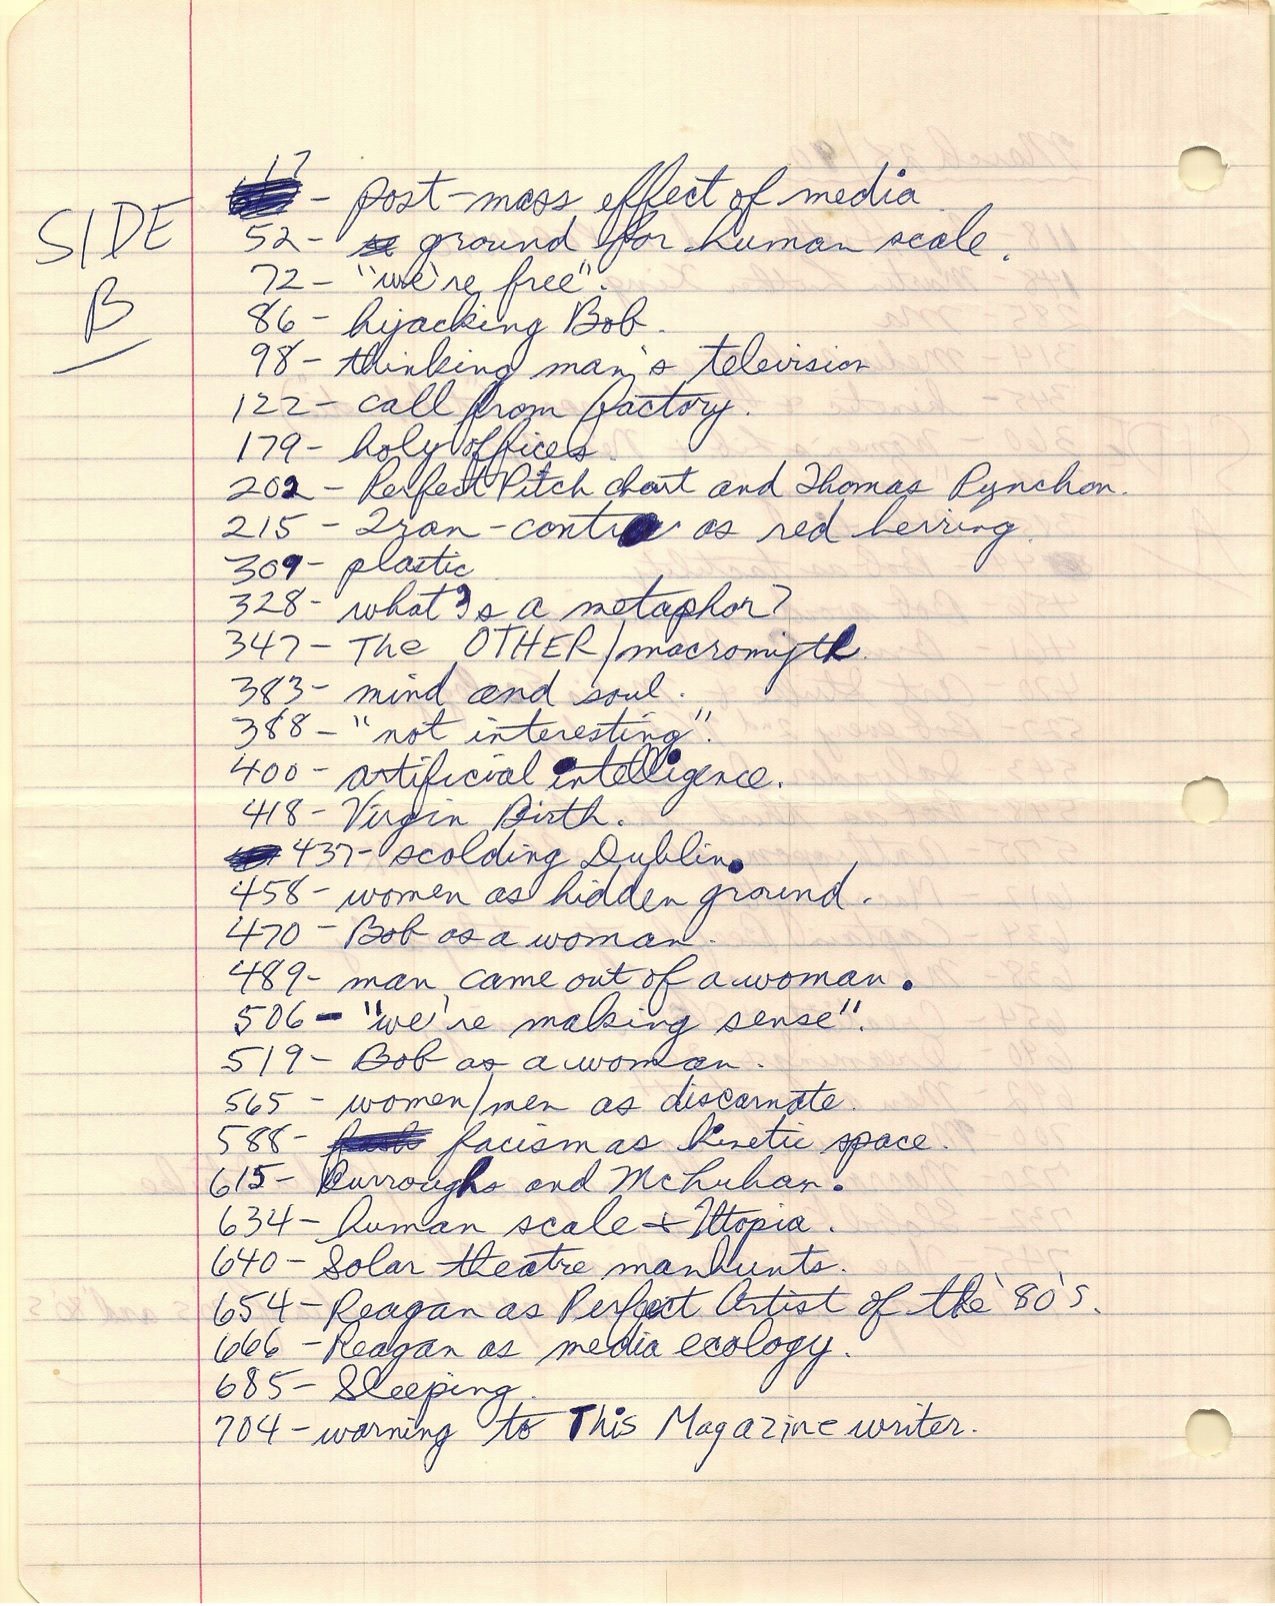 SIDE
B
17 - post-mass effect of media
52 - ground for human scale.
72 - "we're free".
86 - hijacking Bob.
98 - thinking man's television
122 - call from factory.
179 - holy offices.
202 - Perfect Pitch chart and Thomas Pynchon.
215 - Iran-contra as red herring.
309 - plastic
328 - what is a metaphor?
347 - The OTHER/macromyth.
383 - mind and soul.
388 - "not interesting".
400 - artificial intelligence.
418 - Virgin Birth.
437 - scolding Dublin.
458 - women as hidden ground.
470 - Bob as a woman.
489 - man came out of a woman.
506 - "we're making sense".
519 - Bob as a woman.
565 - women/men as discarnate.
588 - facism as kinetic space.
615 - Burroughs and McLuhan.
634 - human scale + Utopia.
640 - Solar theatre manhunts.
654 - Reagan as Perfect Artist of the '80's.
666 - Reagan as media ecology.
685 - Sleeping.
704 - warning to This Magazine writer.